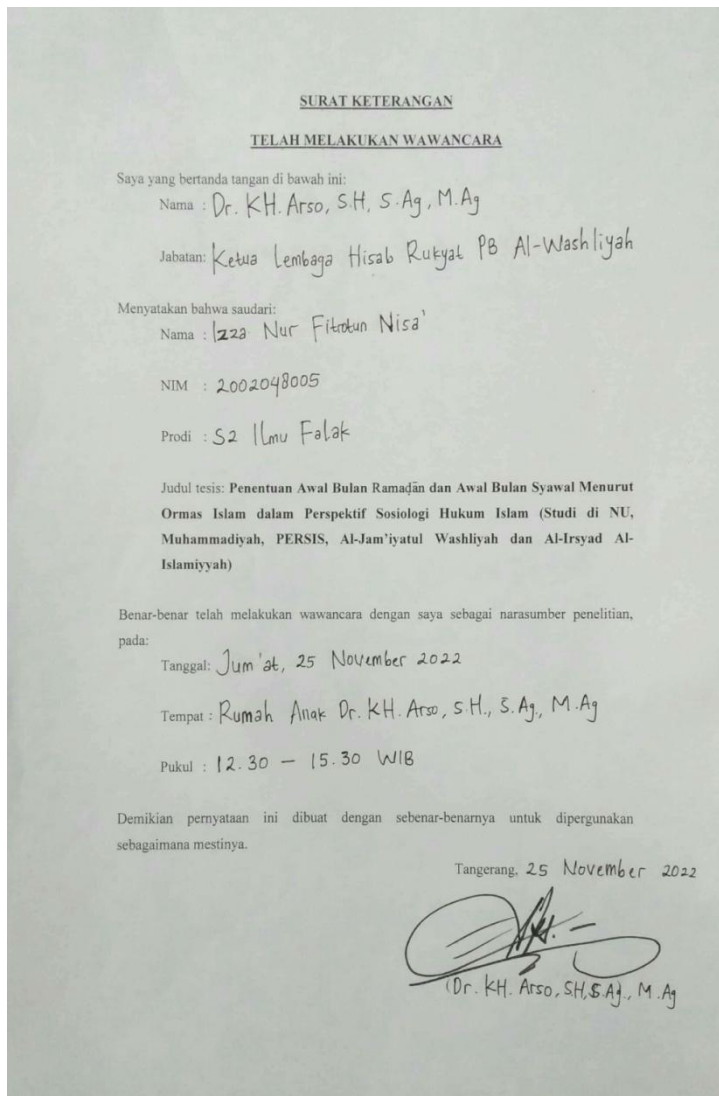 SURAT KETERANGAN
TELAH MELAKUKAN WAWANCARA
Saya yang bertanda tangan di bawah ini:
Nama : Dr. KH. Arso, S.H, S.Ag, M.Ag
Jabatan: Ketua Lembaga Hisab Rukyat PB Al-Washliyah
Menyatakan bahwa saudari:
Nama : Izza Nur Fitrotun Nisa'
NIM : 2002048005
Prodi : S2 Ilmu Falak
Judul tesis: Penentuan Awal Bulan Ramaḍān dan Awal Bulan Syawal Menurut
Ormas Islam dalam Perspektif Sosiologi Hukum Islam (Studi di NU,
Muhammadiyah, PERSIS, Al-Jam'iyatul Washliyah dan Al-Irsyad Al-
Islamiyyah)
Benar-benar telah melakukan wawancara dengan saya sebagai narasumber penelitian,
pada:
Tanggal: Jum'at, 25 November 2022
Tempat : Rumah Anak Dr. KH. Arso, S.H., S.Ag., M.Ag
Pukul : 12.30 – 15.30 WIB
Demikian pernyataan ini dibuat dengan sebenar-benarnya untuk dipergunakan
sebagaimana mestinya.
Tangerang, 25 November 2022
(Dr. KH. Arso, S.H, S.Ag., M.Ag